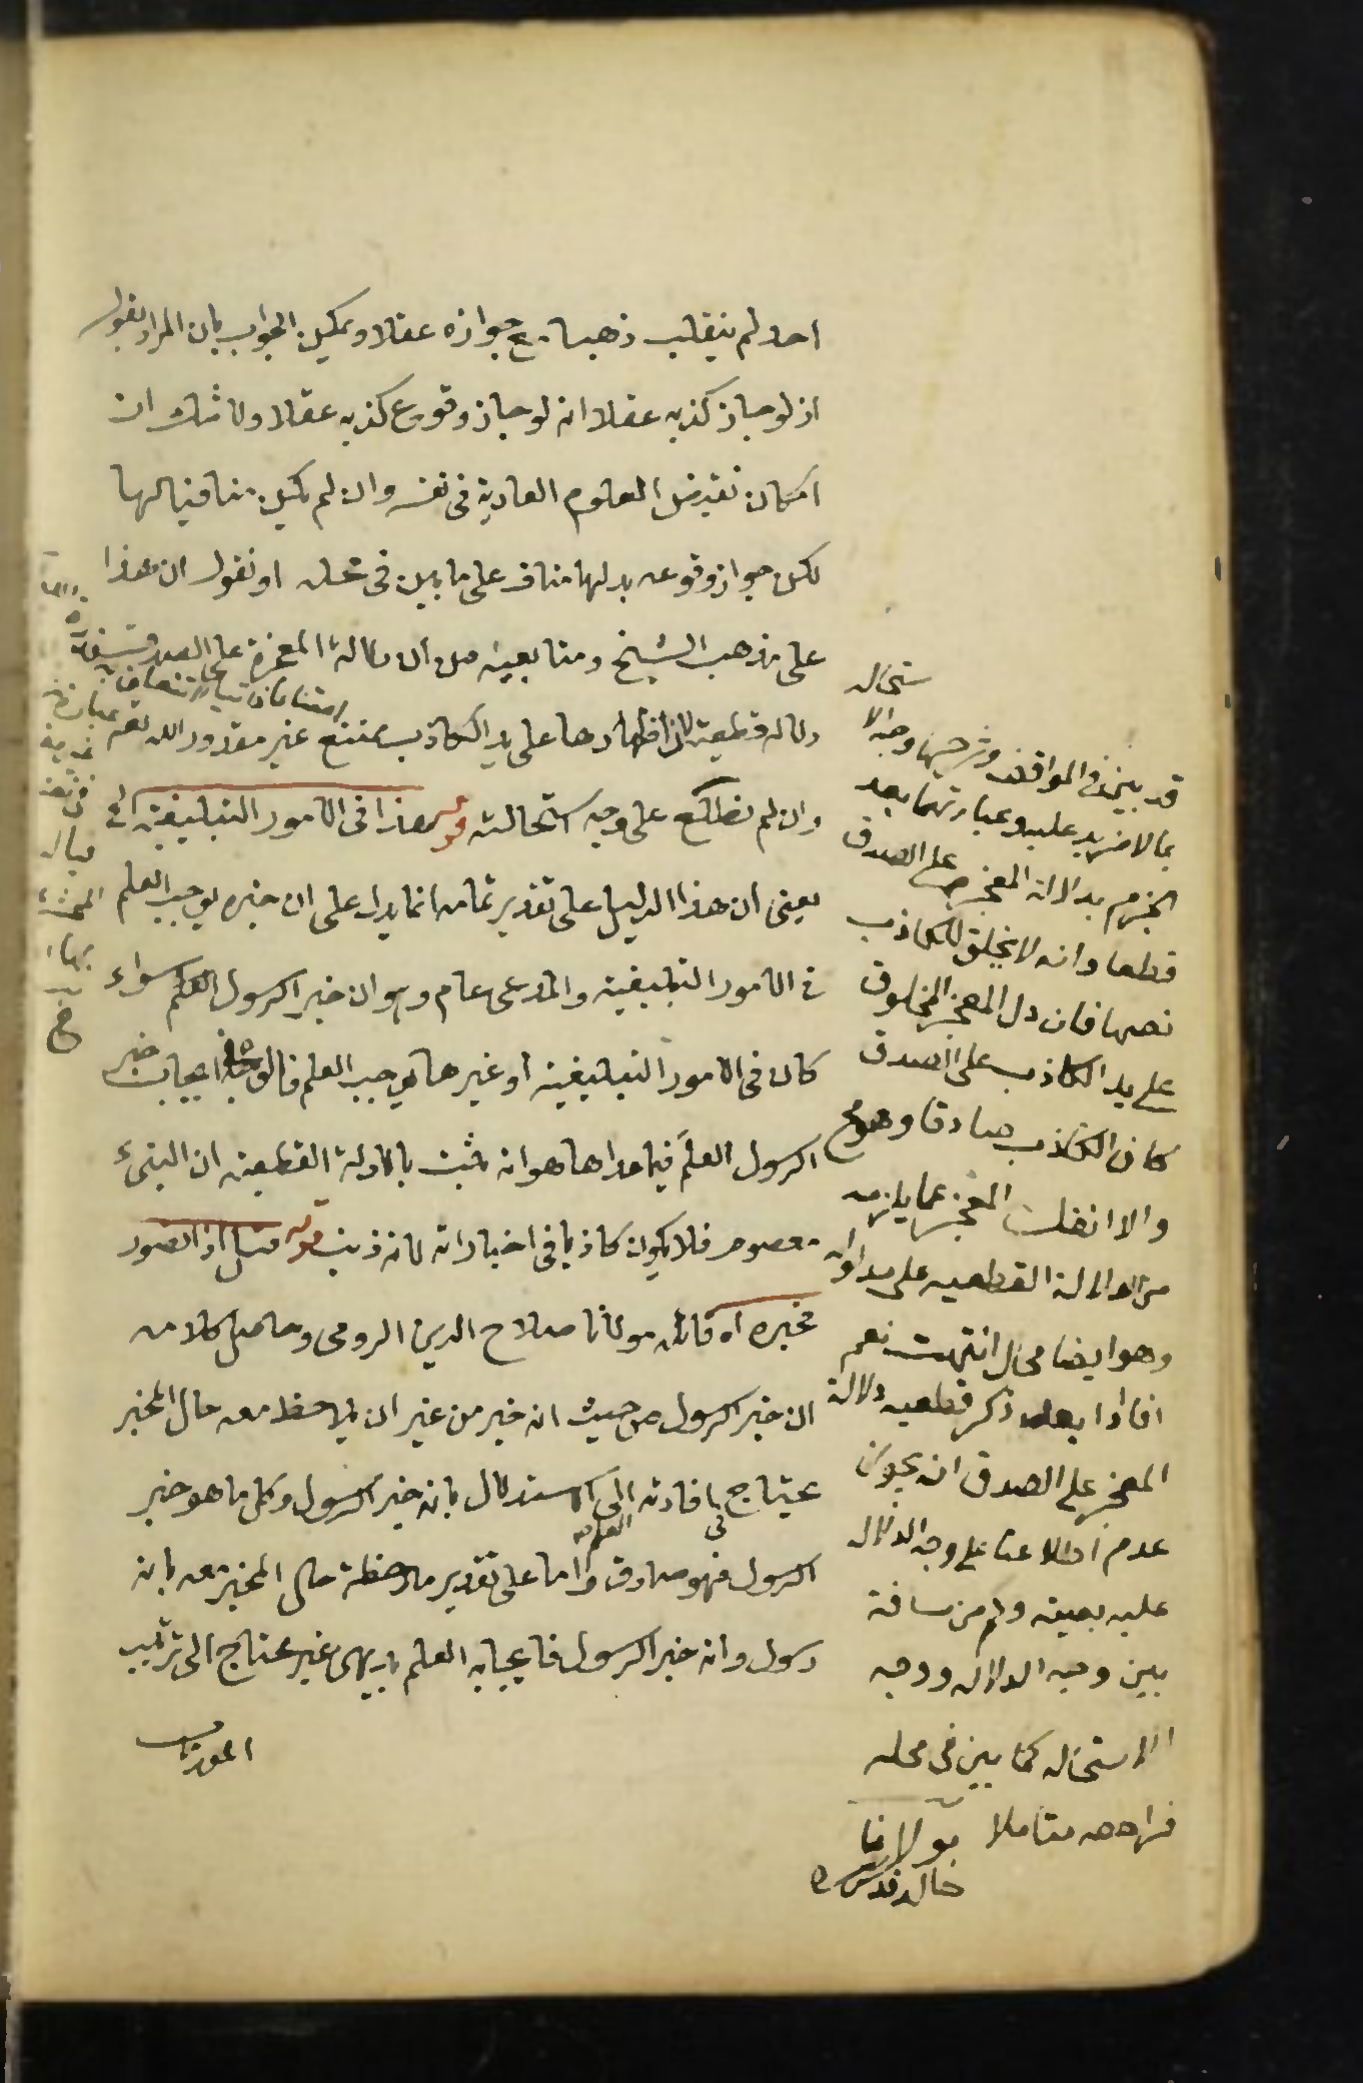 احد لم ينقلب ذهبا مع جوازه عقلا ويمكن الجواب بان المراد بقوله
اذ لو جاز كذبه عقلا انه لو جاز وقوع كذبه عقلا ولا شك ان
امكان نقيض العلوم العادية فى نفسه وان لم يكن منافيا لها
لكن جواز وقوعه بدلها مناف على ما بين فى محله او نقول ان هذا
على مذهب الشيخ ومتابعيه من ان دلالة المعجزة على الصدق
دلالة قطعية لان اظهارها على يد الكاذب ممتنع غير مقدور الله تعم
وان لم نطلع على وجه استحالته قوله هذا فى الامور التبليغية الخ
يعنى ان هذا الدليل على تقدير تمامه انما يدل على ان خبره يوجب العلم
فى الامور التبليغية والمدعى عام وهو ان خبر الرسول العلم سواء
كان فى الامور التبليغية او غيرها يوجب العلم فالوجه فى ايجاب خبر
الرسول العلم فيما عداها هو انه ثبت بالادلة القطعية ان النبى
معصوم فلا يكون كاذبا فى اخباراته لانه ذنب قوله قيل اذا تصور
مخبره اه قائله مولانا صلاح الدين الرومى وحاصل كلامه
ان خبر الرسول من حيث انه خبر من غير ان يلاحظ معه حال المخبر
يحتاج فى افادته العلم الى الاستدلال بانه خبر الرسول وكل ما هو خبر
الرسول فهو صادق واما على تقدير ملاحظة حال المخبر معه بانه
رسول وانه خبر الرسول فايجابه العلم بديهى غير محتاج الى ترتيب
المقدمات
قد بين فى المواقف وشرحها وجه الاستحاله
بما لا مزيد عليه وعبارتهما بعد
الجزم بدلالة المعجز على الصدق
قطعا وانه لا يخلق للكاذب
نصها فان دل المعجز المخلوق
على يد الكاذب على الصدق
كان الكاذب صادقا وهو مح
والا انفك المعجز عما يلزمه
من الدلالة القطعيه على مدلوله
وهو ايضا محال انتهت نعم
افادا بعد ذكر قطعيه دلالة
المعجز على الصدق انه يجوز
عدم اطلاعنا على وجه الدلاله
عليه بعينه وكم من مسافة
بين وجه الدلاله ووجه
الاستحاله كما بين فى محله
فراجعه متاملا مولانا
خالد قدس سره